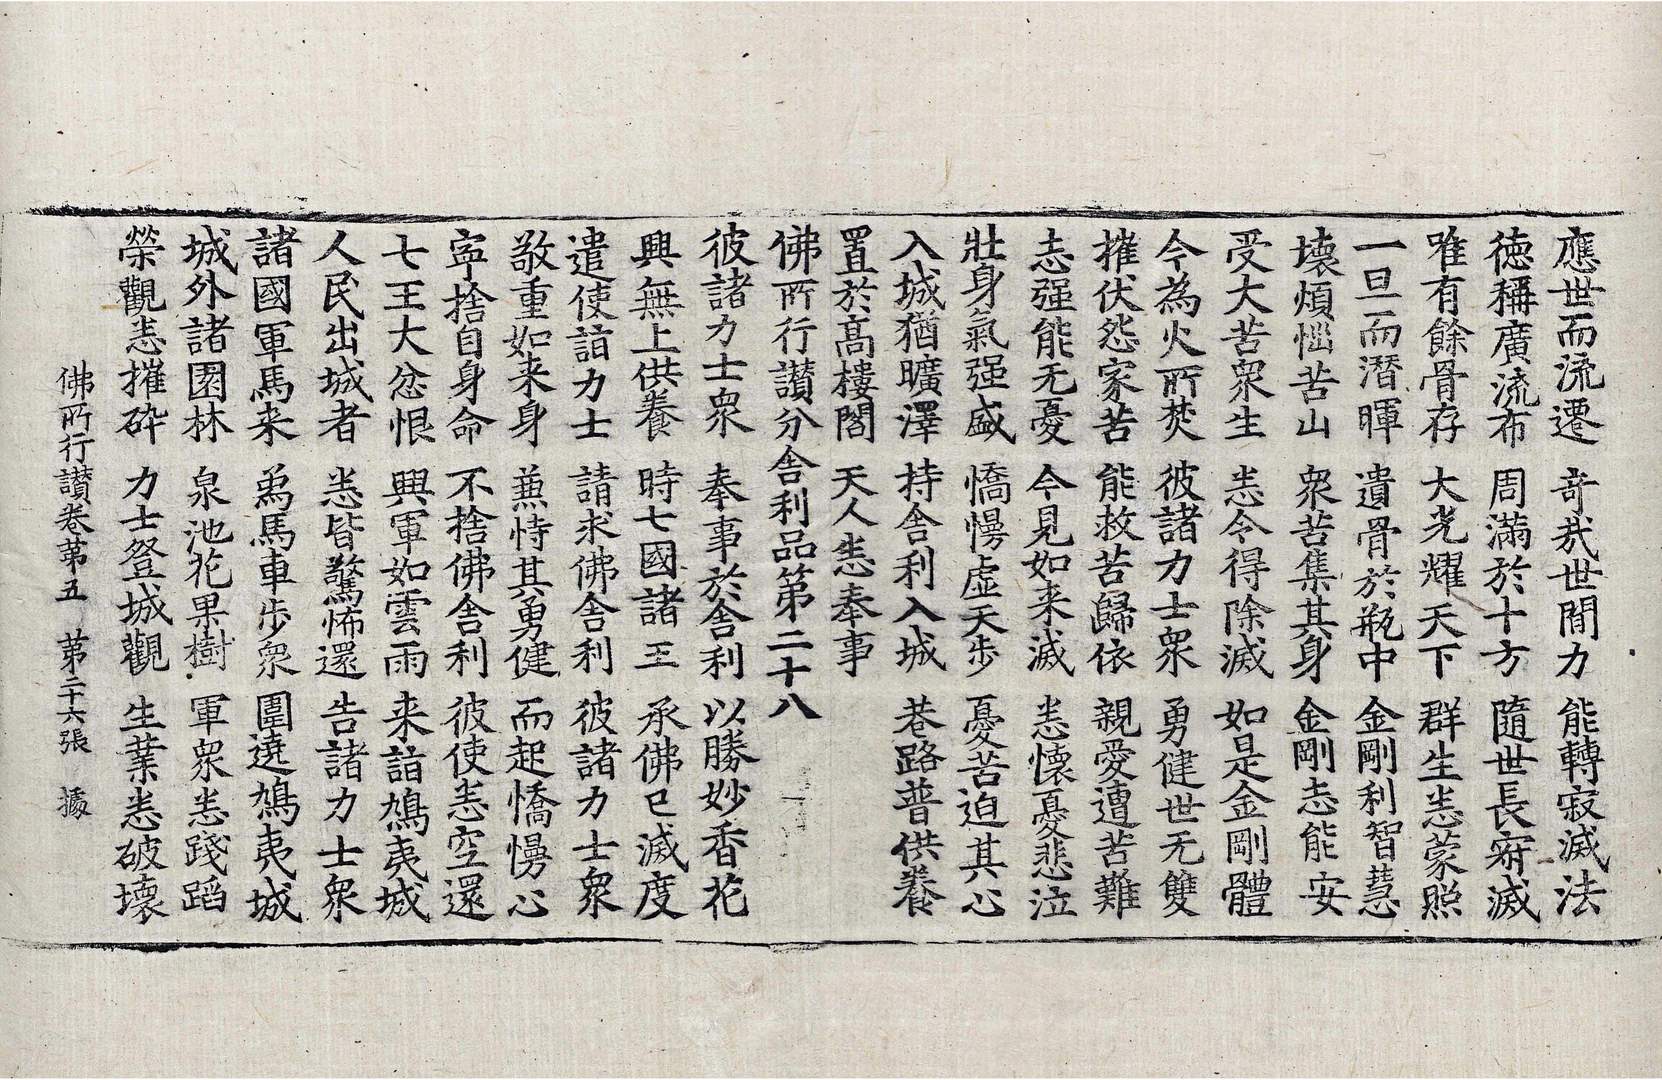 應世而流遷 竒㢤世間力 能轉寂滅法
德稱廣流布 周滿於十方 隨世長寂滅
唯有餘骨存 大光耀天下 群生悉蒙照
一旦而潛暉 遺骨於瓶中 金剛利智慧
壞煩惱苦山 衆苦集其身 金剛志能安
受大苦衆生 悉令得除滅 如是金剛體
今為火所焚 彼諸力士衆 勇健世无雙
摧伏怨家苦 能救苦歸依 親愛遭苦難
志强能无憂 今見如来滅 悉懷憂悲泣
壯身氣强盛 憍慢虛天步 憂苦迫其心
入城猶曠澤 持舍利入城 巷路普供養
置於髙樓閣 天人悉奉事
佛所行讃分舍利品第二十八
彼諸力士衆 奉事於舍利 以勝妙香花
興無上供養 時七國諸王 承佛已滅度
遣使詣力士 請求佛舍利 彼諸力士衆
敬重如来身 兼恃其勇健 而起憍慢心
寜捨自身命 不捨佛舍利 彼使悉空還
七王大忿恨 興軍如雲雨 来詣鳩夷城
人民出城者 悉皆驚怖還 告諸力士衆
諸國軍馬来 𧰼馬車步衆 圍遶鳩夷城
城外諸園林 泉池花果樹 軍衆悉踐蹈
榮觀悉摧碎 力士登城觀 生業悉破壞
佛所行讃卷第五 第二十六張 據